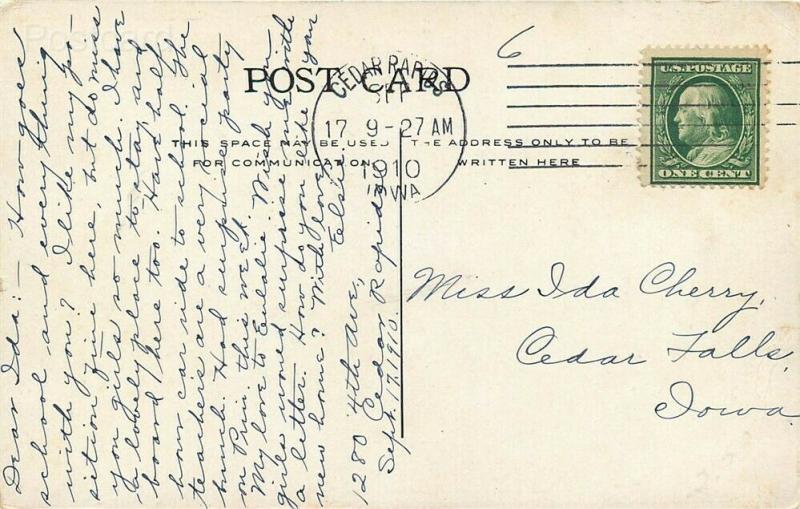 POST CARD
THIS SPACE MAY BE USED
FOR COMMUNICATION
THE ADDRESS ONLY TO BE
WRITTEN HERE
CEDAR RAPIDS
SEP
17 9-27AM
1910
IOWA
6
U.S. POSTAGE
ONE CENT
Dear Ida:— How goes
school and every thing
with you? I like my po-
sition fine here, but do miss
you girls so much. I have
a lovely place to stay, and
board here too. Have half
hour car ride to school. The
teachers are a very social
bunch. Had surprise party
on Prin. this week.
My love to Eulalie. Wish you
girls would surprise me with
a letter. How do you like your
new home? With love,
Elsie
1280 4th Ave,
Cedar Rapids
Sept. 17, 1910.
Miss Ida Cherry,
Cedar Falls,
Iowa.